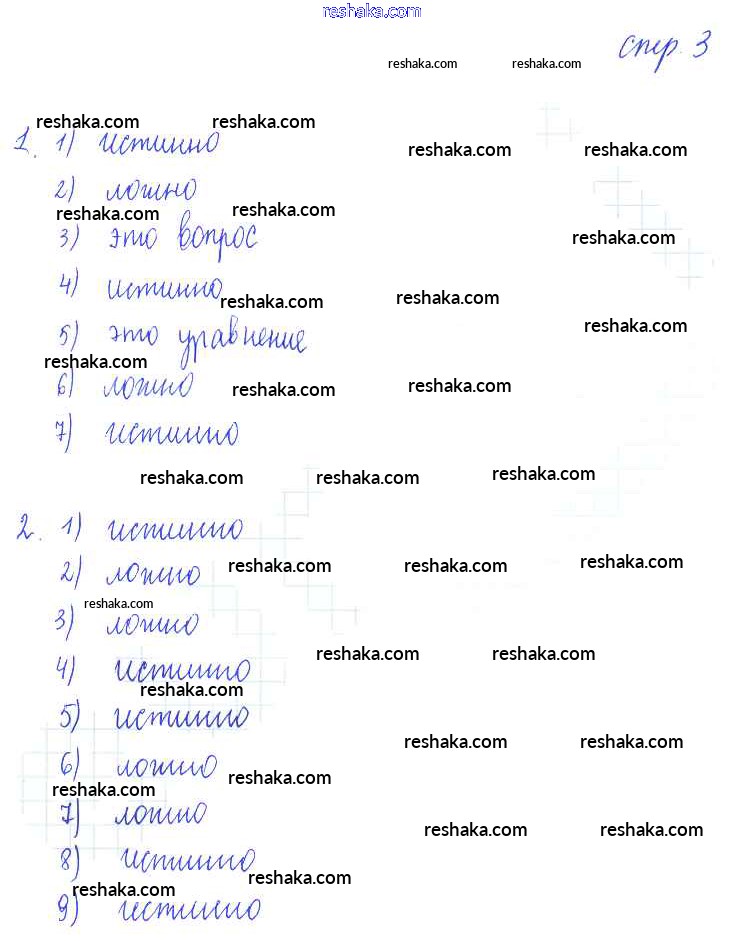 reshaka.com
стр. 3
reshaka.com reshaka.com
reshaka.com reshaka.com
1. 1) истинно
reshaka.com reshaka.com
2) ложно
reshaka.com reshaka.com
3) это вопрос
reshaka.com
4) истинно
reshaka.com reshaka.com
5) это уравнение
reshaka.com
reshaka.com
6) ложно
reshaka.com reshaka.com
7) истинно
reshaka.com reshaka.com reshaka.com
2. 1) истинно
2) ложно
reshaka.com reshaka.com reshaka.com
reshaka.com
3) ложно
reshaka.com reshaka.com
4) истинно
reshaka.com
5) истинно
reshaka.com reshaka.com
6) ложно
reshaka.com reshaka.com
7) ложно
reshaka.com reshaka.com
8) истинно
reshaka.com reshaka.com
9) истинно